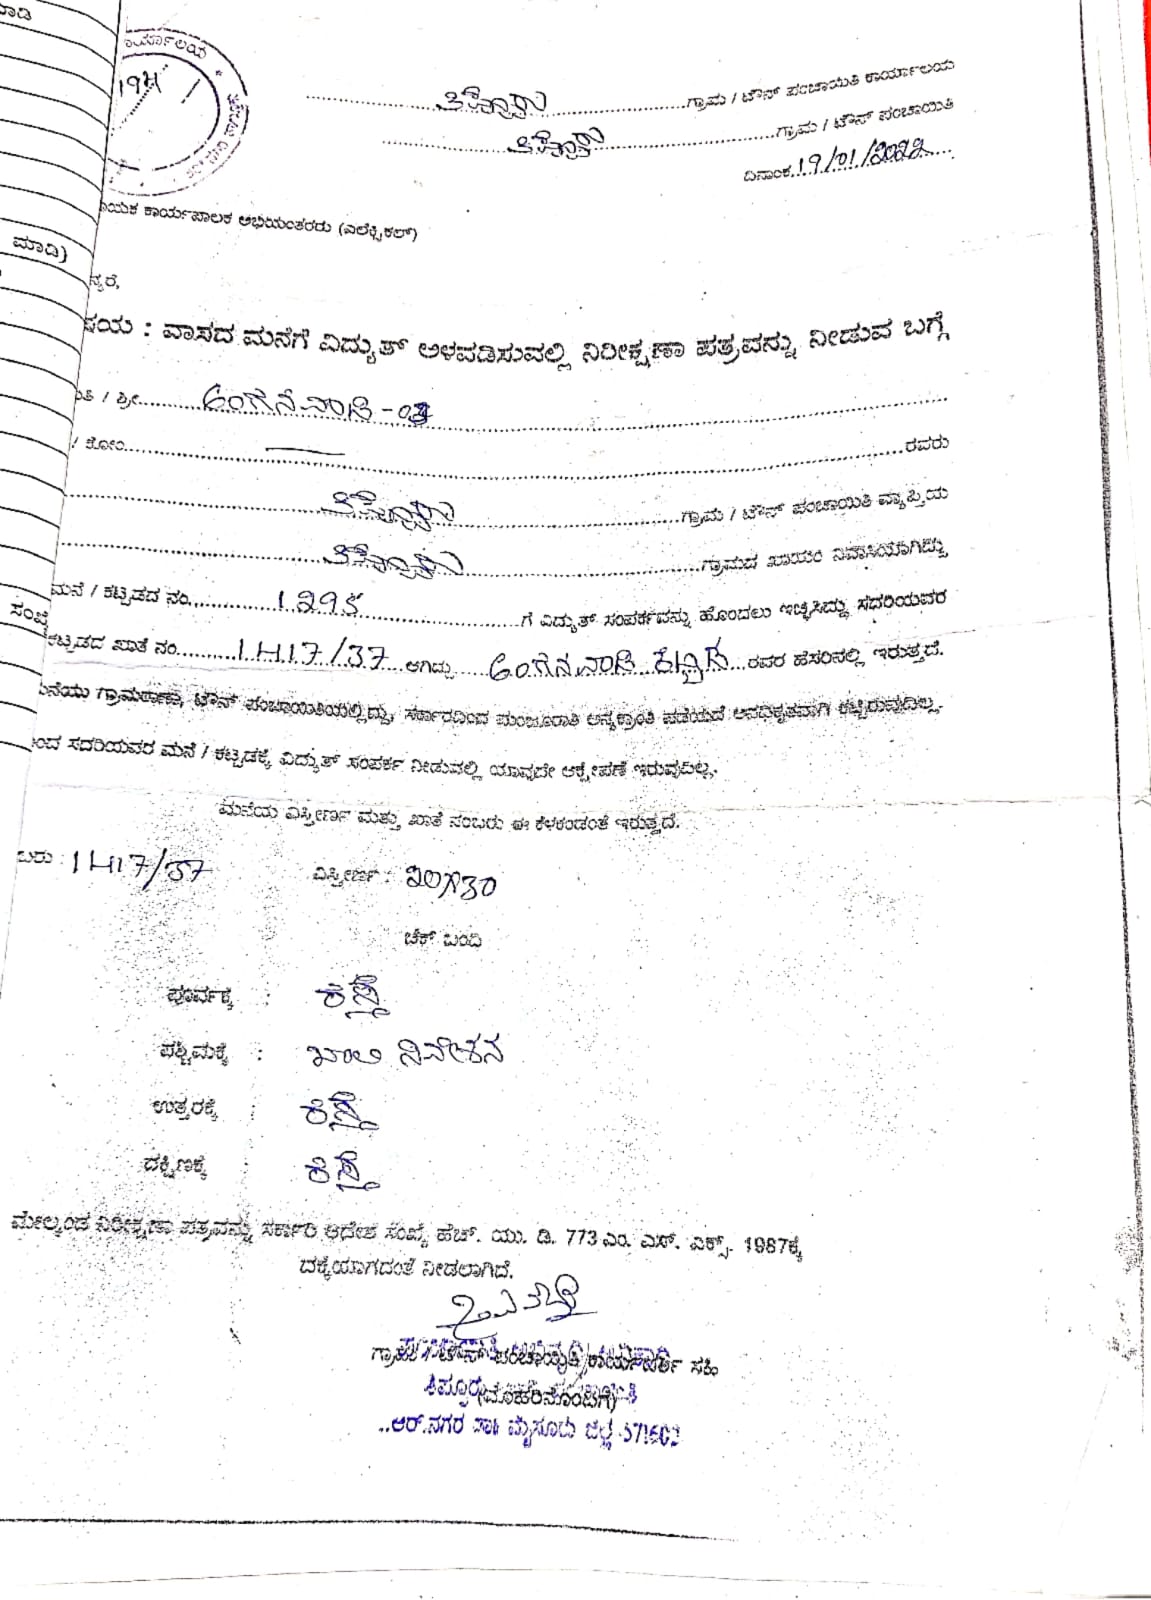 ಮಾಡಿ
ಕಾರ್ಯಾಲಯ
ಗ್ರಾಮ / ಟೌನ್ ಪಂಚಾಯಿತಿ ಕಾರ್ಯಾಲಯ
ಗ್ರಾಮ / ಟೌನ್ ಪಂಚಾಯಿತಿ
ದಿನಾಂಕ 19/01/2022
ಕಾರ್ಯಪಾಲಕ ಅಭಿಯಂತರರು (ಎಲೆಕ್ಟ್ರಿಕಲ್)
ಮಾಡಿ)
ನ್ಯರೆ,
ಷಯ : ವಾಸದ ಮನೆಗೆ ವಿದ್ಯುತ್ ಅಳವಡಿಸುವಲ್ಲಿ ನಿರೀಕ್ಷಣಾ ಪತ್ರವನ್ನು ನೀಡುವ ಬಗ್ಗೆ
ತಿ / ಶ್ರೀ ಅಂಗನವಾಡಿ
/ ಕೋಂ ರವರು
ಗ್ರಾಮ / ಟೌನ್ ಪಂಚಾಯಿತಿ ವ್ಯಾಪ್ತಿಯ
ಗ್ರಾಮದ ಖಾಯಂ ನಿವಾಸಿಯಾಗಿದ್ದು
ಮನೆ / ಕಟ್ಟಡದ ನಂ. 1295 ಗೆ ವಿದ್ಯುತ್ ಸಂಪರ್ಕವನ್ನು ಹೊಂದಲು ಇಚ್ಛಿಸಿದ್ದು ಸದರಿಯವರ
ಕಟ್ಟಡದ ಖಾತೆ ನಂ. ಆಗಿದ್ದು ಅಂಗನವಾಡಿ ಕಟ್ಟಡ ರವರ ಹೆಸರಿನಲ್ಲಿ ಇರುತ್ತದೆ.
ನೆಯು ಗ್ರಾಮಠಾಣಾ, ಟೌನ್ ಪಂಚಾಯಿತಿಯಲ್ಲಿದ್ದು, ಸರ್ಕಾರದಿಂದ ಮಂಜೂರಾತಿ ಅನ್ಯಕ್ರಾಂತಿ ಪಡೆಯದೆ ಅನಧಿಕೃತವಾಗಿ ಕಟ್ಟಿರುವುದಿಲ್ಲ.
ಂದ ಸದರಿಯವರ ಮನೆ / ಕಟ್ಟಡಕ್ಕೆ ವಿದ್ಯುತ್ ಸಂಪರ್ಕ ನೀಡುವಲ್ಲಿ ಯಾವುದೇ ಆಕ್ಷೇಪಣೆ ಇರುವುದಿಲ್ಲ.
ಮನೆಯ ವಿಸ್ತೀರ್ಣ ಮತ್ತು ಖಾತೆ ನಂಬರು ಈ ಕೆಳಕಂಡಂತೆ ಇರುತ್ತದೆ.
ಬರು : ವಿಸ್ತೀರ್ಣ : 20x30
ಚೆಕ್ ಬಂದಿ
ಪೂರ್ವಕ್ಕೆ : ರಸ್ತೆ
ಪಶ್ಚಿಮಕ್ಕೆ : ಖಾಲಿ ನಿವೇಶನ
ಉತ್ತರಕ್ಕೆ : ರಸ್ತೆ
ದಕ್ಷಿಣಕ್ಕೆ : ರಸ್ತೆ
ಮೇಲ್ಕಂಡ ನಿರೀಕ್ಷಣಾ ಪತ್ರವನ್ನು ಸರ್ಕಾರಿ ಆದೇಶ ಸಂಖ್ಯೆ ಹೆಚ್. ಯು. ಡಿ. 773 ಎಂ. ಎಸ್. ಎಕ್ಸ್. 1987ಕ್ಕೆ
ದಕ್ಕೆಯಾಗದಂತೆ ನೀಡಲಾಗಿದೆ.
ಗ್ರಾಮ / ಟೌನ್ ಪಂಚಾಯ್ತಿ ಕಾರ್ಯದರ್ಶಿ ಸಹಿ
(ಮೊಹರಿನೊಂದಿಗೆ)
ಆರ್.ನಗರ ತಾ॥ ಮೈಸೂರು ಜಿಲ್ಲೆ 571602